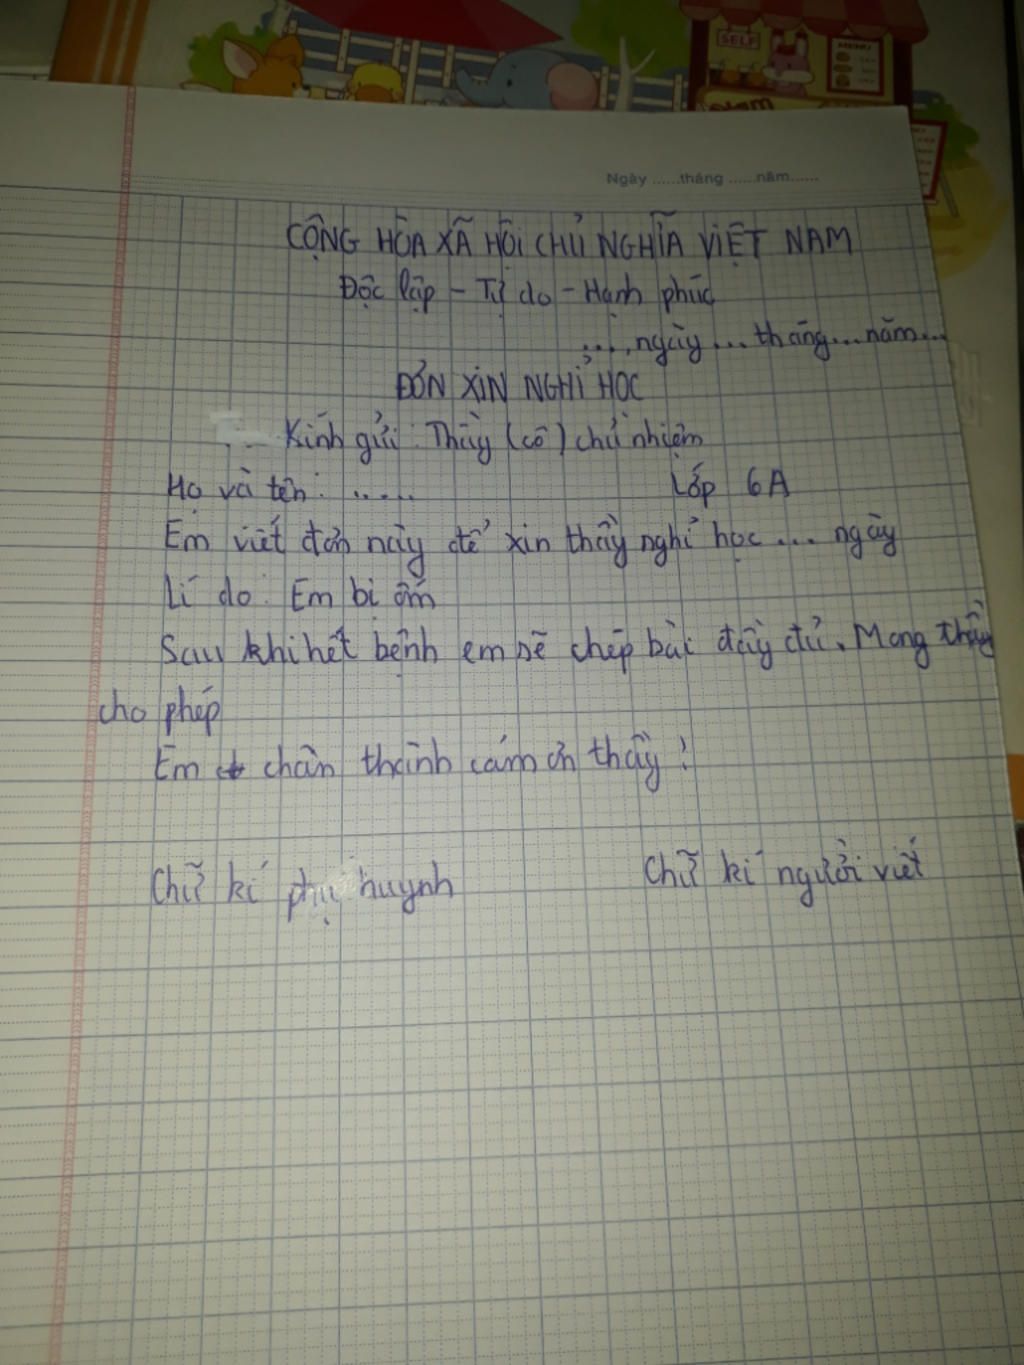 SELF
MENU
Ngày ......tháng ......năm......
CỘNG HÒA XÃ HỘI CHỦ NGHĨA VIỆT NAM
Độc lập - Tự do - Hạnh phúc
...., ngày ... tháng ... năm ...
ĐƠN XIN NGHỈ HỌC
Kính gửi: Thầy (cô) chủ nhiệm
Họ và tên: ..... Lớp 6A
Em viết đơn này để xin thầy nghỉ học ... ngày
Lí do: Em bị ốm
Sau khi hết bệnh em sẽ chép bài đầy đủ. Mong thầy
cho phép
Em chân thành cám ơn thầy!
Chữ kí phụ huynh Chữ kí người viết